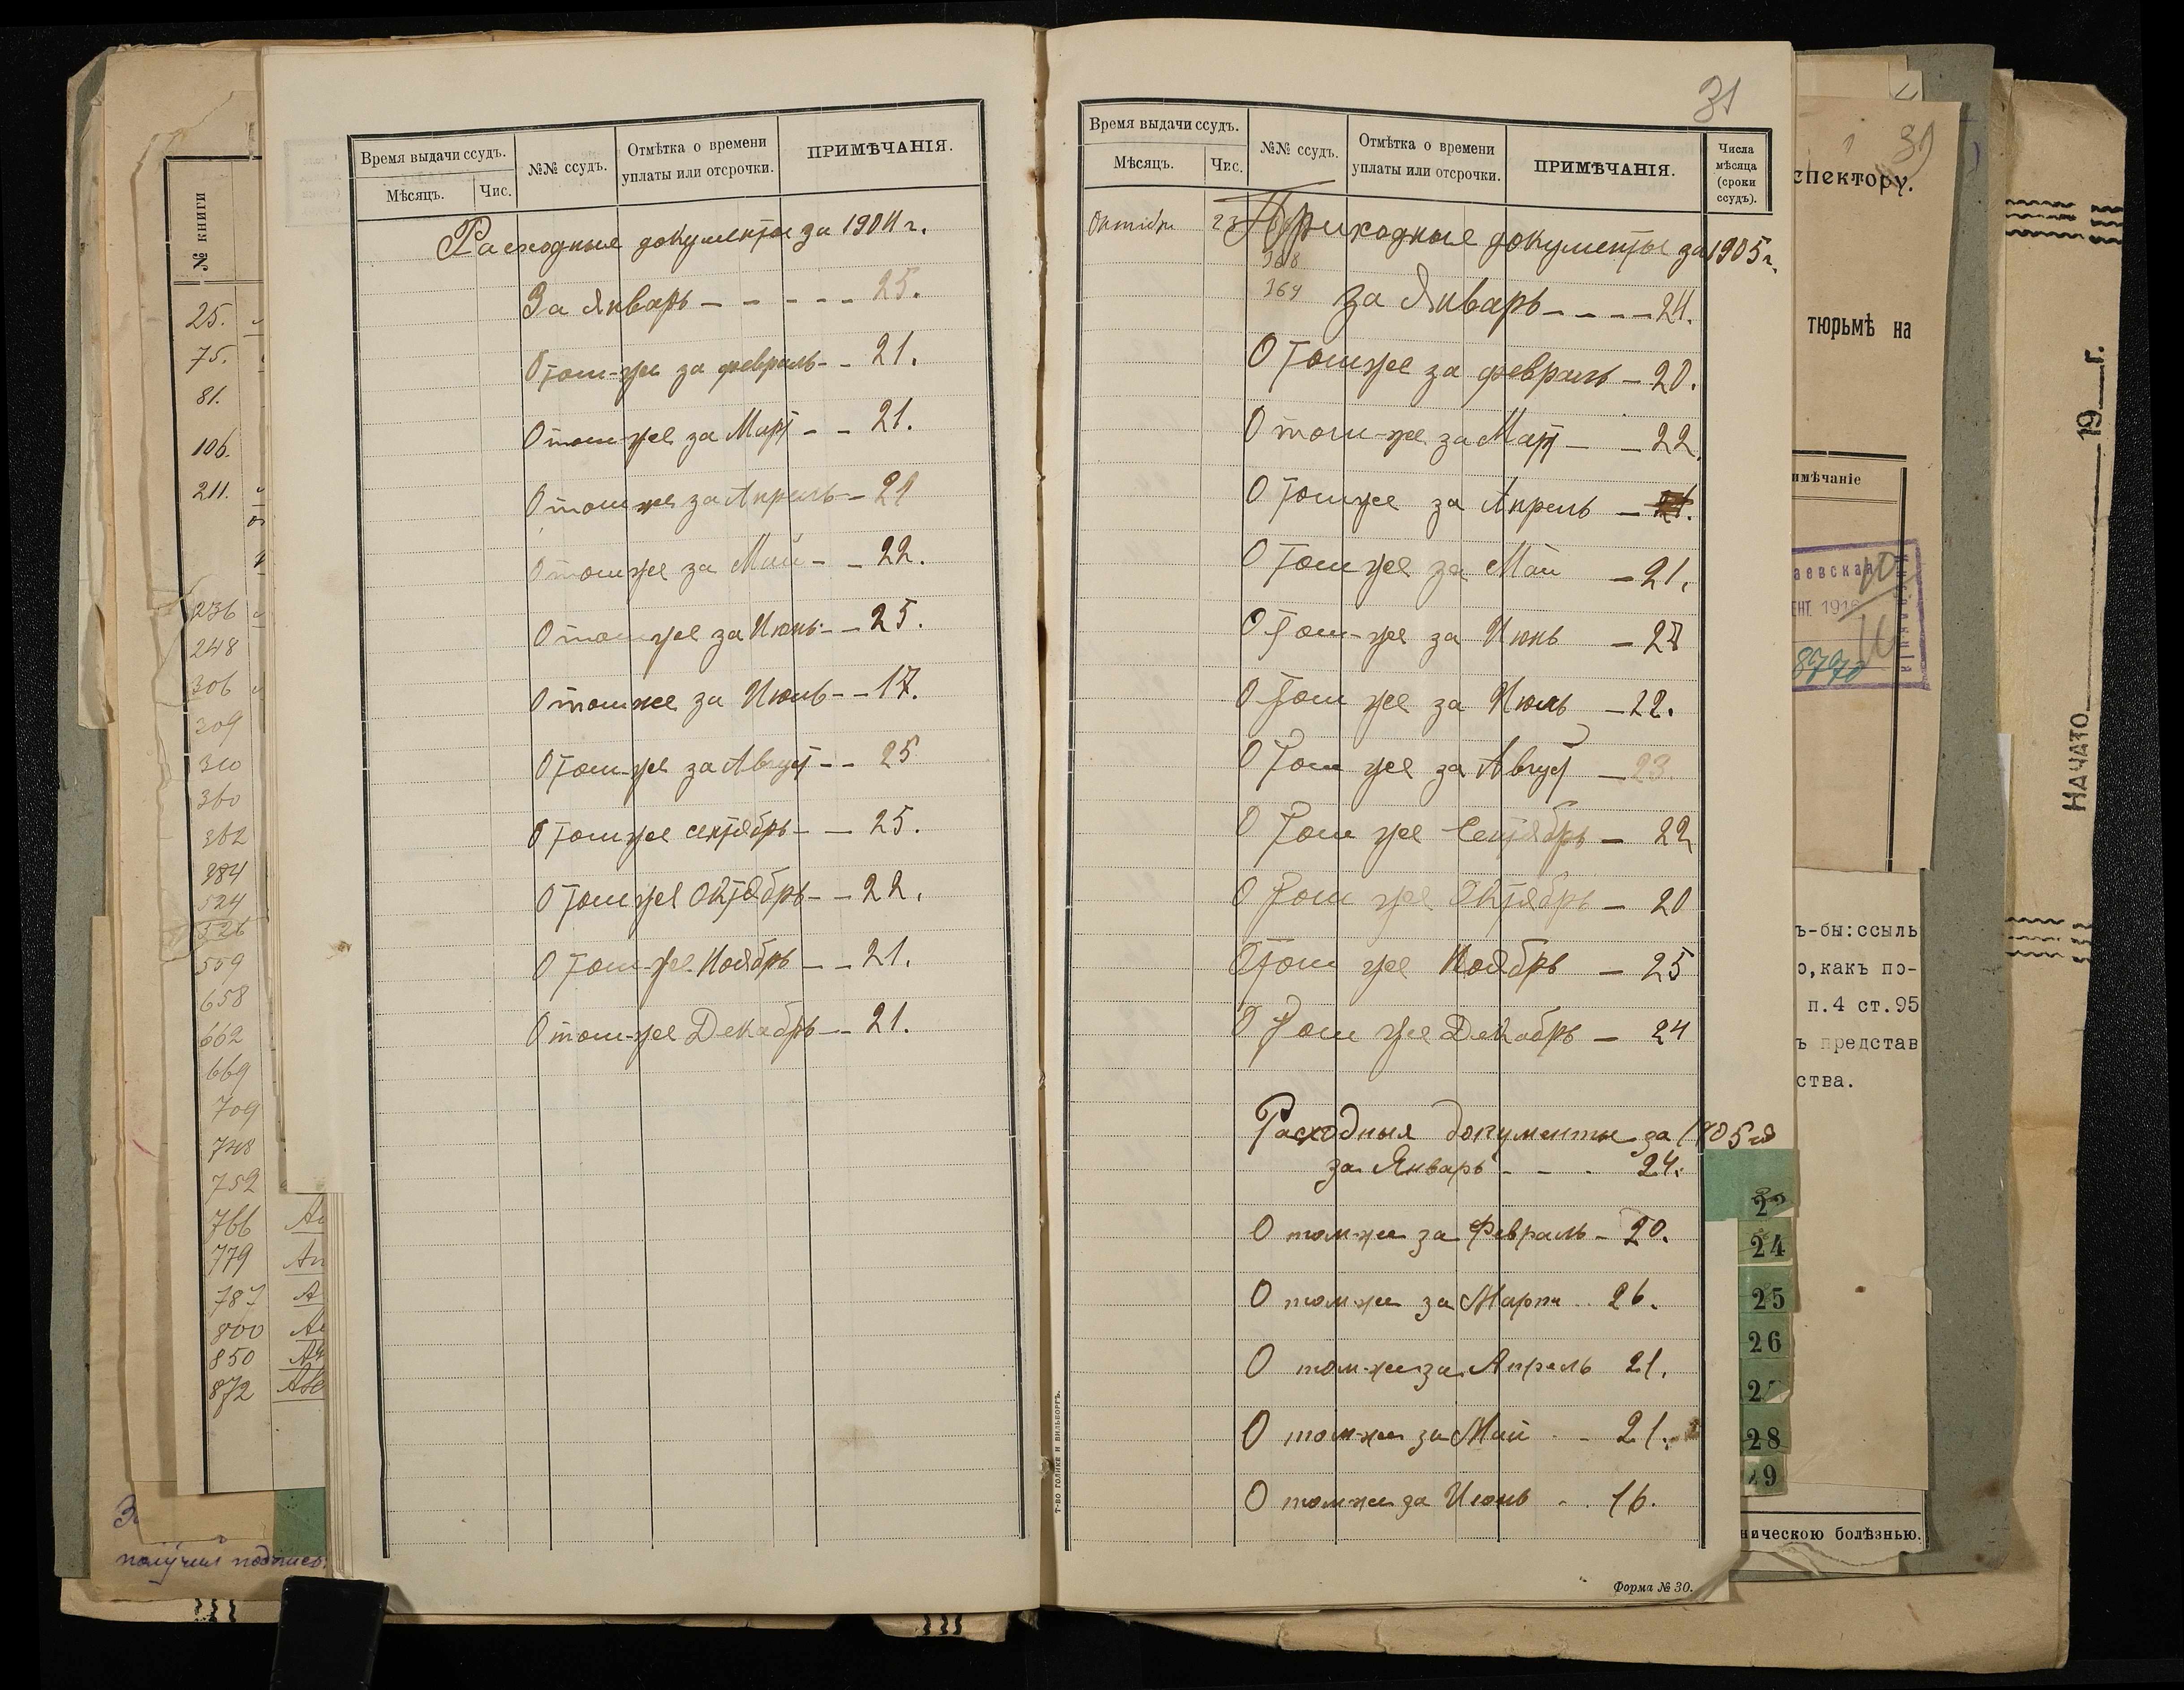 № книги
25.
75.
81.
106.
211.
236
248
306
309
310
360
362
384
524
526
559
658
662
669
709
748
752
766
779
787
800
850
872
получил подпись
Время выдачи ссудъ.
Мѣсяцъ.
Чис.
№№ ссудъ.
Отмѣтка о времени
уплаты или отсрочки.
ПРИМѢЧАНІЯ.
Расходные документы за 1904 г.
За Январь - - - - - 25.
О том-же за февраль - - 21.
О том же за Март - - 21.
О том же за Апрель - 21
О том же за Май - - 22.
О том же за Июнь - - 25.
О том же за Июль - - 17.
О том-же за Август - - 25
О том же сентябрь - - 25.
О том же Октябрь - - 22.
О том-же Ноябрь - - 21.
О том-же Декабрь - - 21.
31
Время выдачи ссудъ.
Мѣсяцъ.
Чис.
№№ ссудъ.
Отмѣтка о времени
уплаты или отсрочки.
ПРИМѢЧАНІЯ.
Числа
мѣсяца
(сроки
ссудъ).
Октября 23
Приходные документы за 1905 г.
368
369
за Январь - - - - 24.
О том же за февраль - 20.
О том-же за Март - - 22.
О том же за Апрель -
О том же за Май - 21.
О том-же за Июнь - 27
О том же за Июль - 22.
О том же за Август - 23.
О том же Сентябрь - 22
О том же Октябрь - 20
О том же Ноябрь - 25
О том же Декабрь - 24
Расходныя документы за 1905 г
за Январь - - . 24.
О том-же за Февраль - 20.
О том-же за Марта . . 26.
О том-же за Апрель 21.
О том-же за Май . - 21.
О том-же за Июнь . . 16.
Т-ВО ГОЛИКЕ И ВИЛЬБОРГЪ.
Форма № 30.
22
24
25
26
28
29
спектору.
тюрьмѣ на
имѣчаніе
аевская
ЕНТ. 1916
8770
ъ-бы:ссыль
о,какъ по-
п.4 ст.95
ъ представ
ства.
ническою болѣзнью.
НАЧАТО 19 г.